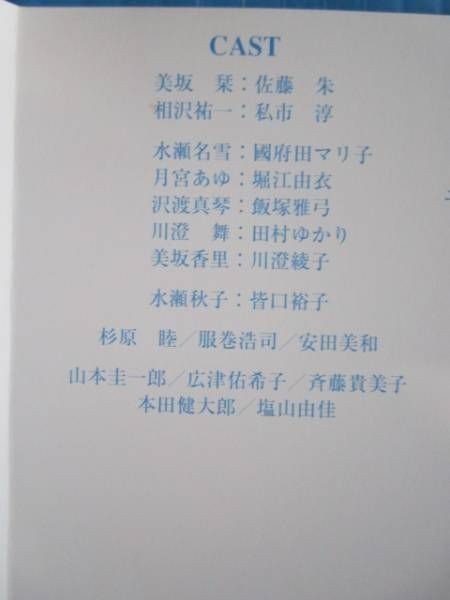 CAST
美坂　栞：佐藤　朱
相沢祐一：私市　淳
水瀬名雪：國府田マリ子
月宮あゆ：堀江由衣
沢渡真琴：飯塚雅弓
川澄　舞：田村ゆかり
美坂香里：川澄綾子
水瀬秋子：皆口裕子
杉原　睦／服巻浩司／安田美和
山本圭一郎／広津佑希子／斉藤貴美子
本田健太郎／塩山由佳